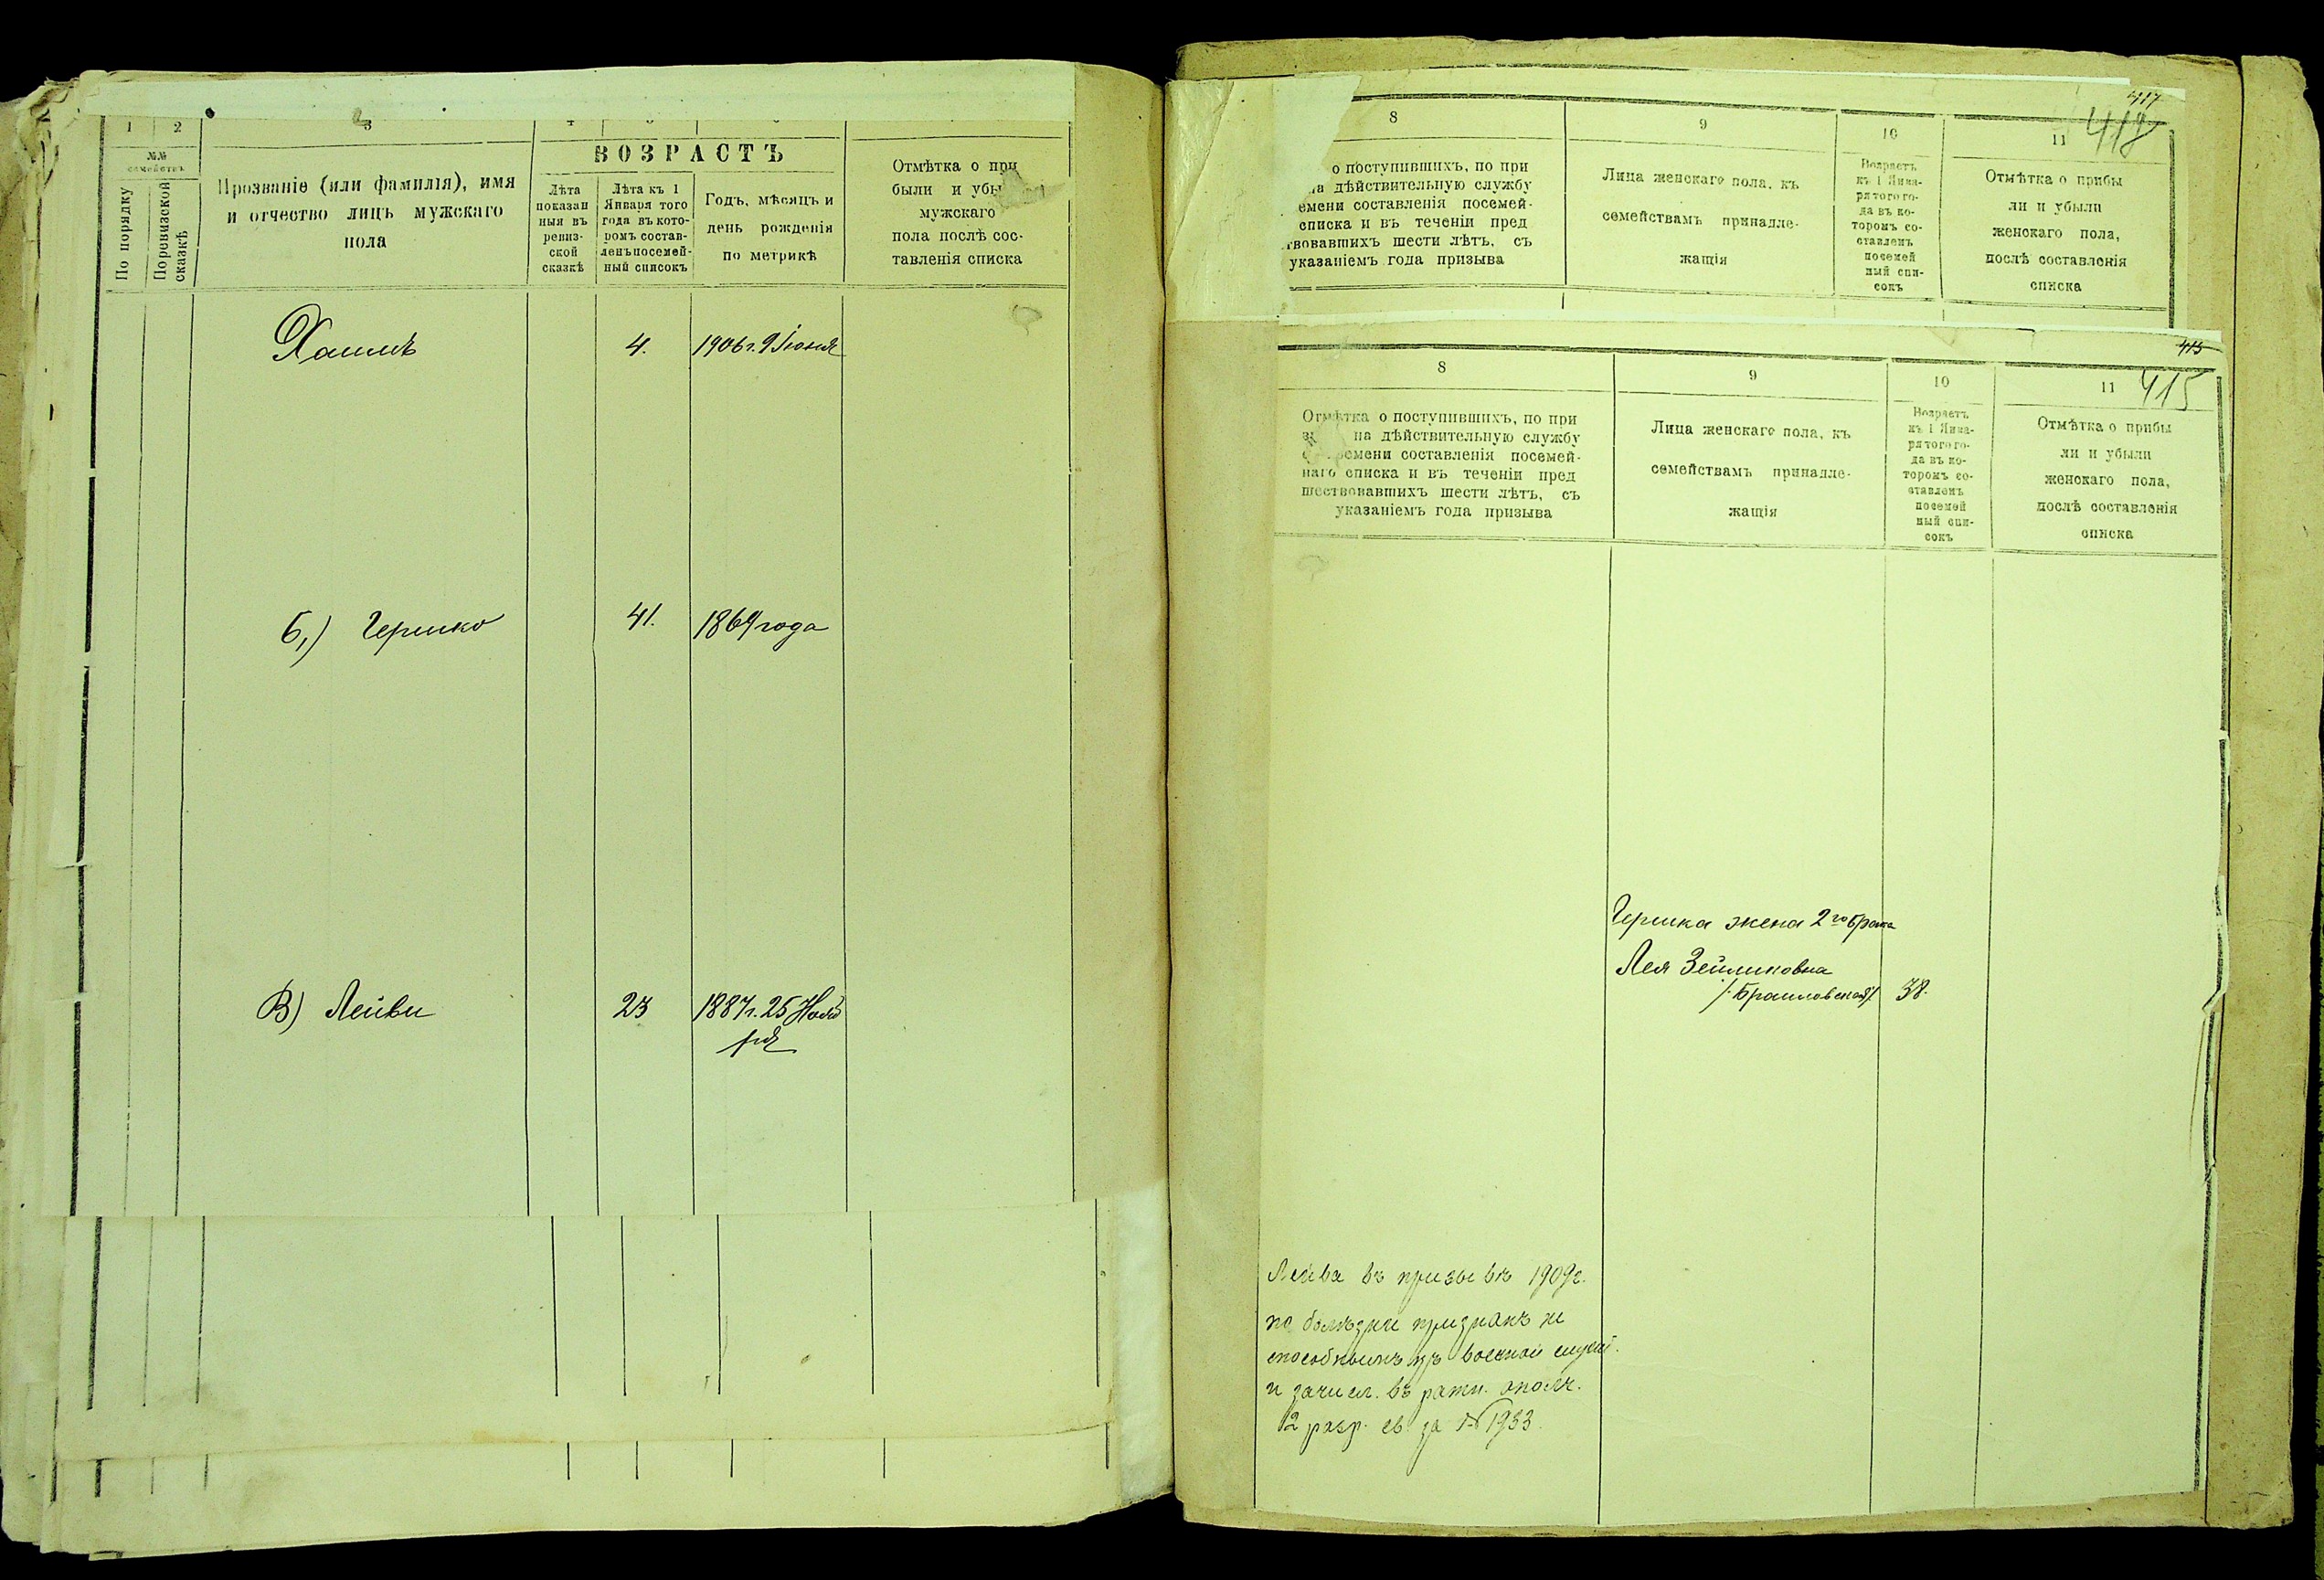 1 2 3
№№ семействъ
По порядку
По ревизской сказкѣ
Прозваніе (или фамилія), имя
и отчество лицъ мужскаго
пола
ВОЗРАСТЪ
Лѣта
показан
ныя въ
ревиз-
ской
сказкѣ
Лѣта къ 1
Января того
года въ кото-
ромъ состав-
ленъ посемей-
ный списокъ
Годъ, мѣсяцъ и
день рожденія
по метрикѣ
Отмѣтка о при
были и убы
мужскаго
пола послѣ сос-
тавленія списка
Хаимъ 4. 1906 г. 9 Іюня
б,) Гершко 41. 1869 года
в) Лейви 23 1887 г. 25 Нояб
ря
417
418
8 9 10 11
о поступившихъ, по при
на дѣйствительную службу
емени составленія посемей-
списка и въ теченіи пред
твовавшихъ шести лѣтъ, съ
указаніемъ года призыва
Лица женскаго пола, къ
семействамъ принадле-
жащія
Возрастъ
къ 1 Янва-
ря того го-
да въ ко-
торомъ со-
ставленъ
посемей
ный спи-
сокъ
Отмѣтка о прибы
ли и убыли
женскаго пола,
послѣ составленія
списка
415
415
8 9 10 11
Отмѣтка о поступившихъ, по при
на дѣйствительную службу
емени составленія посемей-
наго списка и въ теченіи пред
шествовавшихъ шести лѣтъ, съ
указаніемъ года призыва
Лица женскаго пола, къ
семействамъ принадле-
жащія
Возрастъ
къ 1 Янва-
ря того го-
да въ ко-
торомъ со-
ставленъ
посемей
ный спи-
сокъ
Отмѣтка о прибы
ли и убыли
женскаго пола,
послѣ составленія
списка
Гершка жена 2го брака
Лея Зейликовна
/Браиловская/ 38.
Лейва въ призывѣ 1909 г.
по болѣзни признанъ не
способнымъ къ военной служб.
и зачисл. въ ратн. ополч.
2 разр. св. за № 1933.